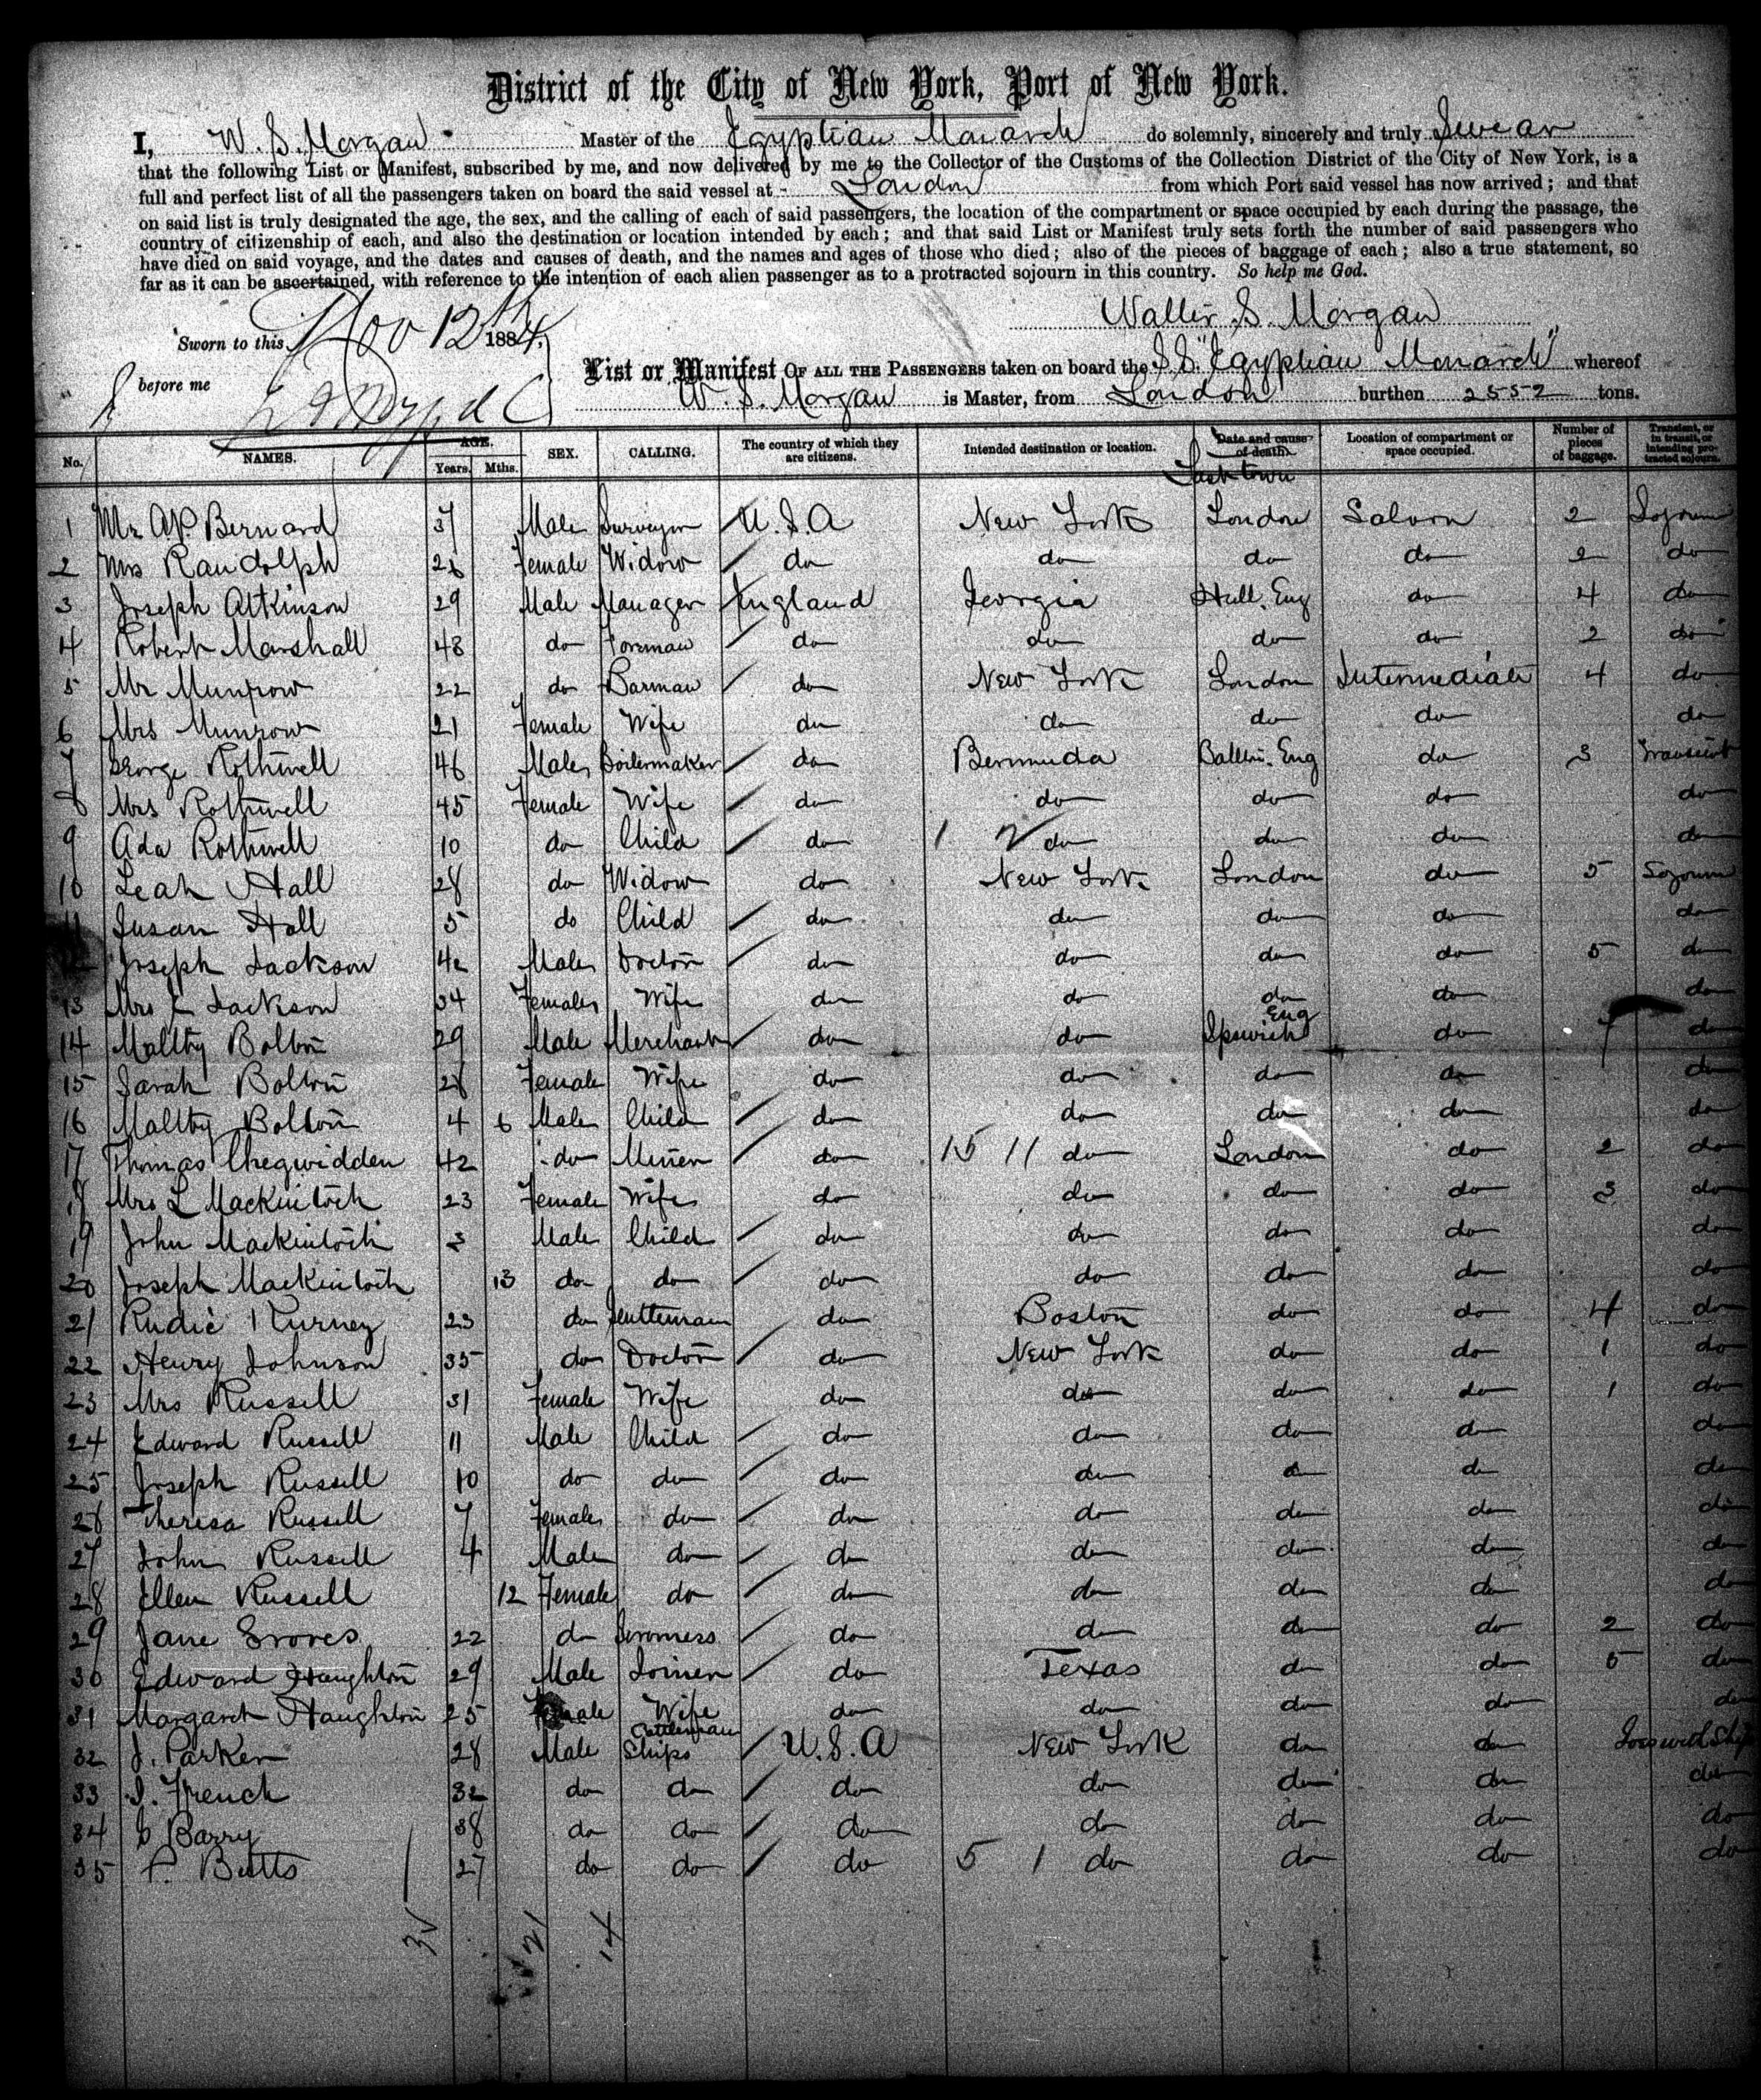 District of the City of New York, Port of New York.
I, W. S. Morgan Master of the Egyptian Monarch do solemnly, sincerely and truly Swear
that the following List or Manifest, subscribed by me, and now delivered by me to the Collector of the Customs of the Collection District of the City of New York, is a
full and perfect list of all the passengers taken on board the said vessel at London from which Port said vessel has now arrived; and that
on said list is truly designated the age, the sex, and the calling of each of said passengers, the location of the compartment or space occupied by each during the passage, the
country of citizenship of each, and also the destination or location intended by each; and that said List or Manifest truly sets forth the number of said passengers who
have died on said voyage, and the dates and causes of death, and the names and ages of those who died; also of the pieces of baggage of each; also a true statement, so
far as it can be ascertained, with reference to the intention of each alien passenger as to a protracted sojourn in this country. So help me God.
Walter S. Morgan
Sworn to this Nov 12th 1884,
before me
List or Manifest OF ALL THE PASSENGERS taken on board the S.S. "Egyptian Monarch" whereof
W. S. Morgan is Master, from London burthen 2552 tons.
No. NAMES. AGE. Years. Mths. SEX. CALLING. The country of which they are citizens. Intended destination or location. Date and cause of death. Location of compartment or space occupied. Number of pieces of baggage. Transient, or in transit, or intending protracted sojourn.
1 Mr A.P. Bernard 37 Male Surveyor U.S.A New York London Saloon 2 Sojourn
2 Mrs Randolph 26 Female Widow do do do do 2 do
3 Joseph Atkinson 29 Male Manager England Georgia Hull. Eng do 4 do
4 Robert Marshall 48 do Foreman do do do do 2 do
5 Mr Munrow 22 do Barman do New York London Intermediate 4 do
6 Mrs Munrow 21 Female Wife do do do do do
7 George Rothwell 46 Male Boilermaker do Bermuda Eng do 3 Transient
8 Mrs Rothwell 45 Female Wife do do do do do
9 Ada Rothwell 10 do Child do 1 2 do do do do
10 Leah Hall 28 do Widow do New York London do 5 Sojourn
11 Susan Hall 5 do Child do do do do do
12 Joseph Jackson 42 Male Doctor do do do do 5 do
13 Mrs Jackson 34 Female Wife do do do do do
14 Maltby Bolton 29 Male Merchant do do Ipswich Eng do 7 do
15 Sarah Bolton 28 Female Wife do do do do do
16 Maltby Bolton 4 6 Male Child do do do do do
17 Thomas Chegwidden 42 do Miner do 15 11 do London do 2 do
18 Mrs L Mackintosh 23 Female Wife do do do do 3 do
19 John Mackintosh 3 Male Child do do do do do
20 Joseph Mackintosh 13 do do do do do do do
21 23 do Gentleman do Boston do do 4 do
22 Henry Johnson 35 do Doctor do New York do do 1 do
23 Mrs Russell 31 Female Wife do do do do 1 do
24 Edward Russell 11 Male Child do do do do do
25 Joseph Russell 10 do do do do do do do
26 Theresa Russell 7 Female do do do do do do
27 John Russell 4 Male do do do do do do
28 Ellen Russell 12 Female do do do do do do
29 Jane Groves 22 do do do do do 2 do
30 Edward Haughton 29 Male Joiner do Texas do do 5 do
31 Margaret Haughton 25 Female Wife do do do do do
32 J. Parker 28 Male Ships Cattleman U.S.A New York do do
33 J. French 32 do do do do do do do
34 C Barry 38 do do do do do do do
35 P. Butts 27 do do do 5 1 do do do do
21 14